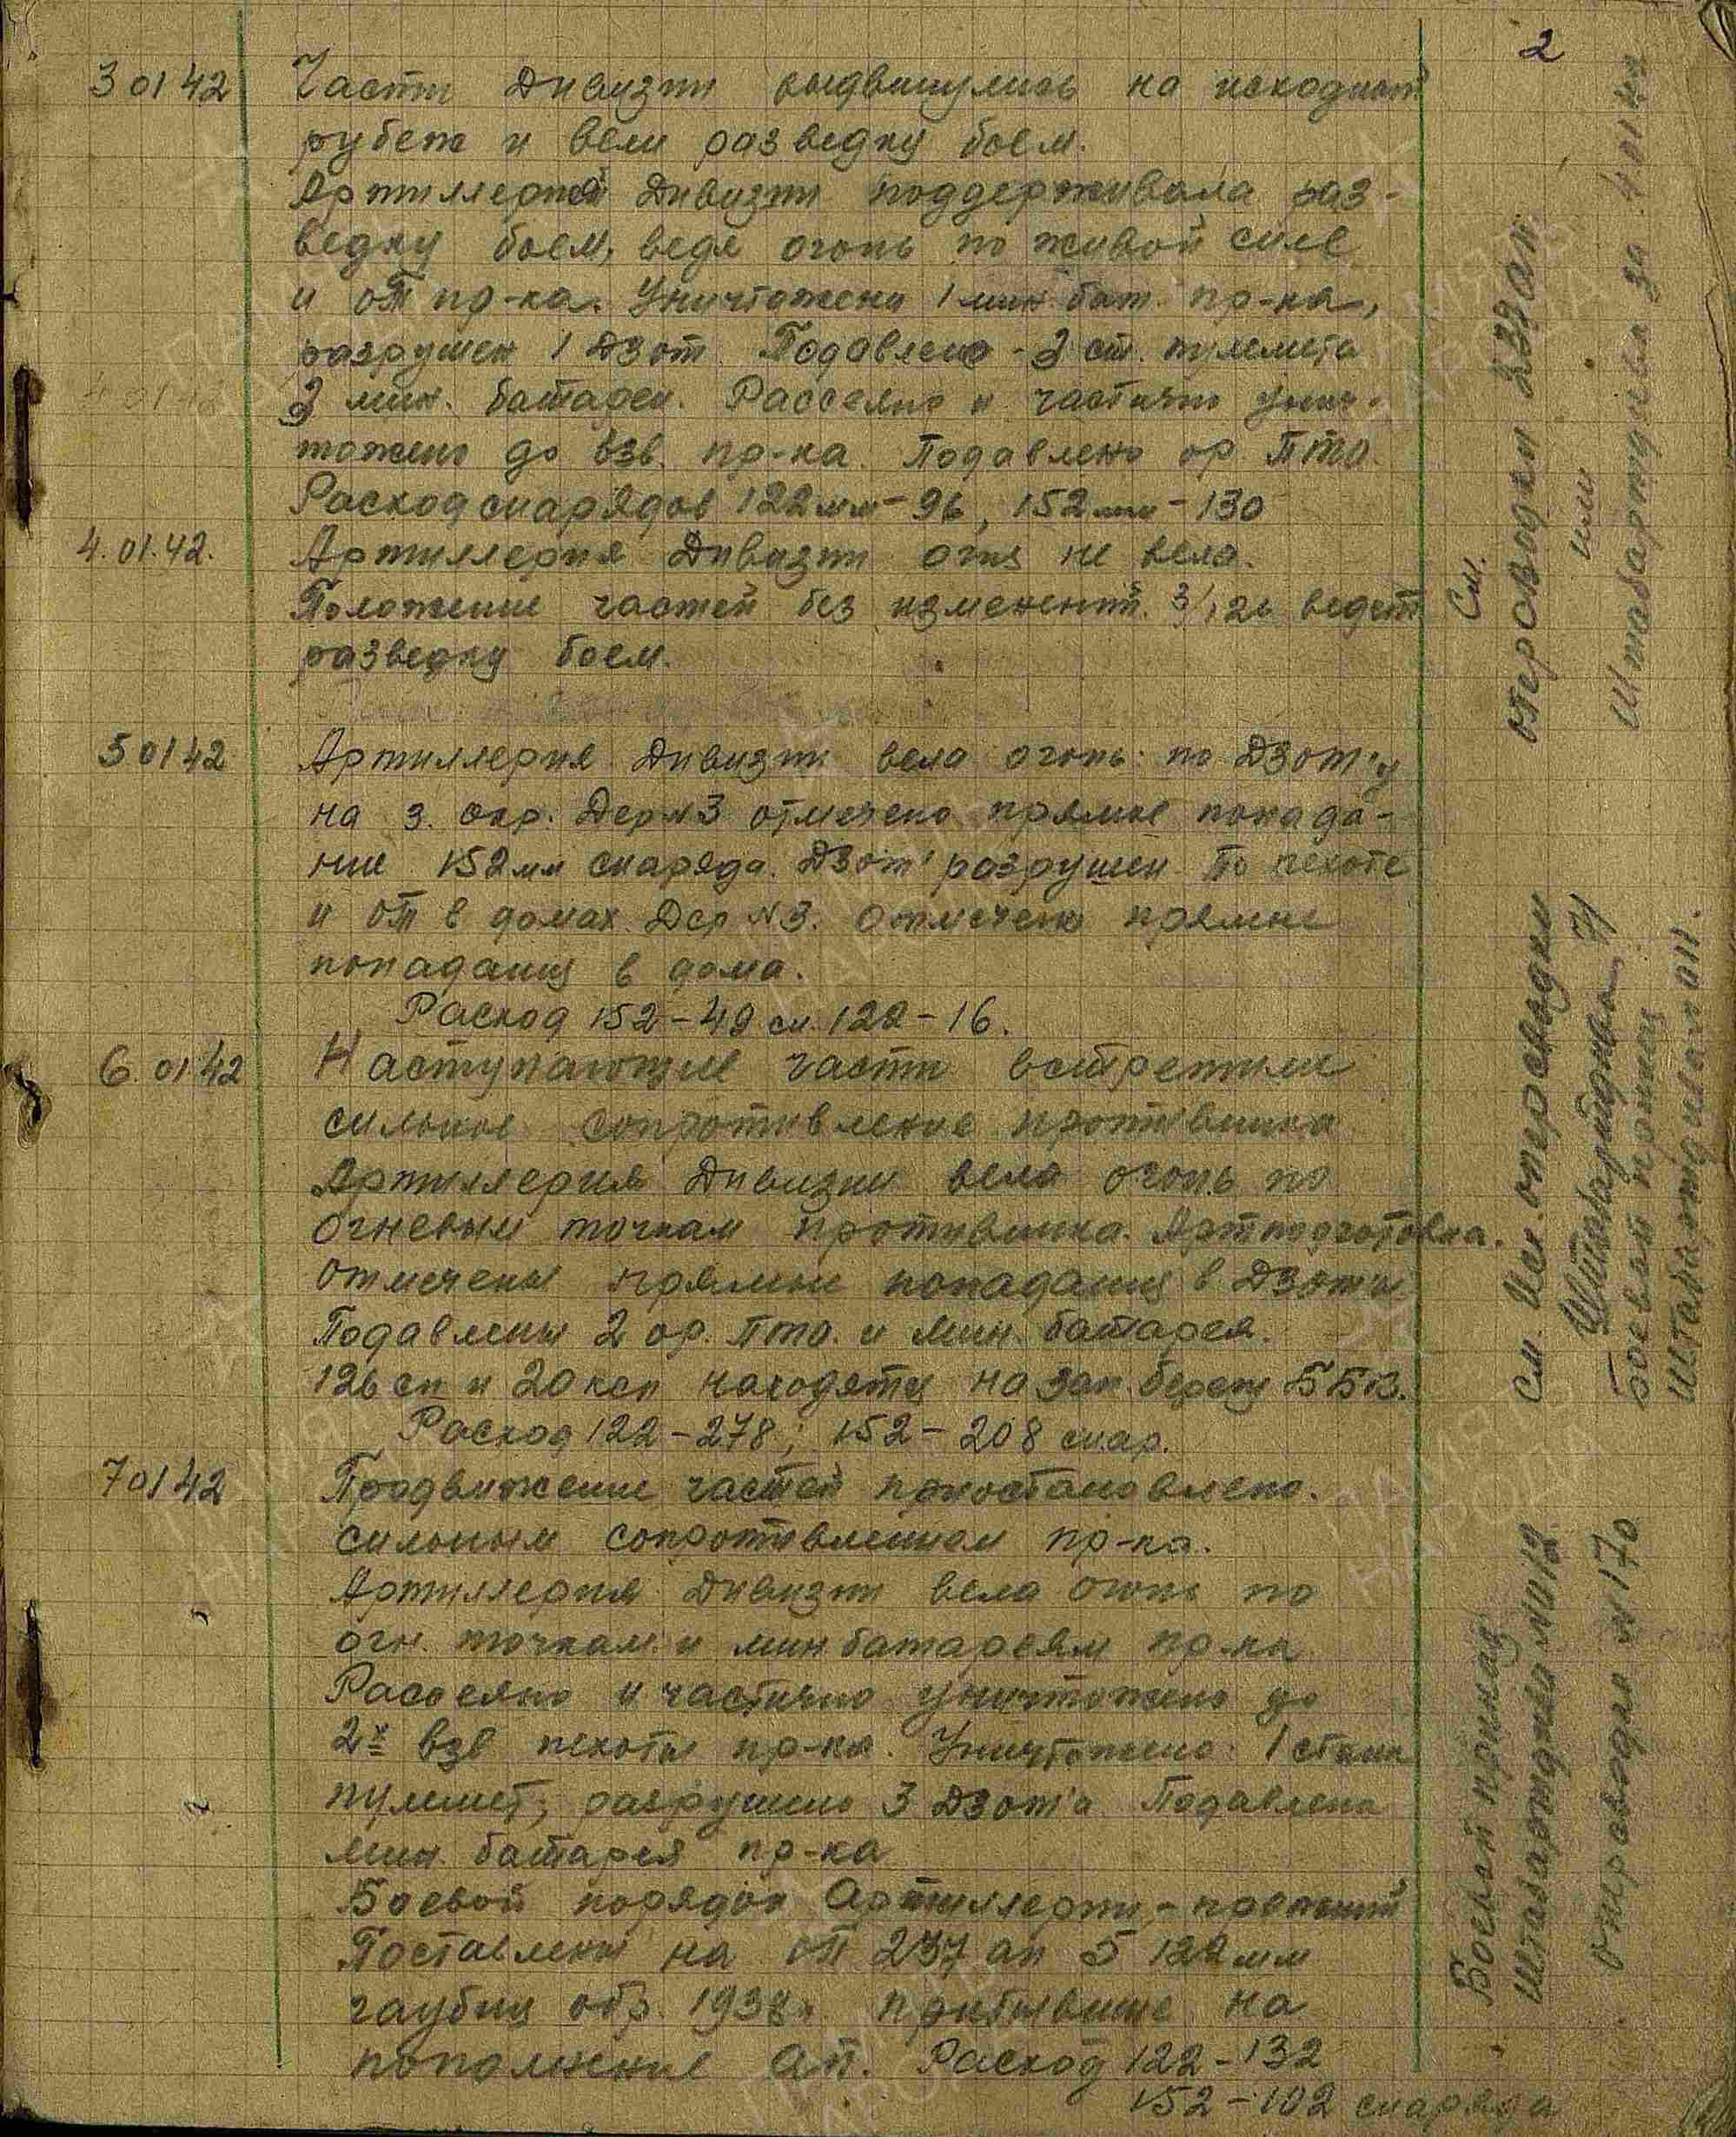 2
3 01 42
Части Дивизии выдвинулись на исходный
рубеж и вели разведку боем.
Артиллерия Дивизии поддерживала раз-
ведку боем, ведя огонь по живой силе
и от пр-ка. Уничтожена 1 мин. бат. пр-ка,
разрушен 1 Дзот. Подавлено - 3 ст. пулемета
3 мин. батареи. Рассеяно и частично унич-
тожено до взв. пр-ка. Подавлено ор. ПТО.
Расход снарядов 122 мм - 96, 152 мм - 130
4.01.42.
Артиллерия Дивизии огня не вела.
Положение частей без изменений. 3/126 ведет
разведку боем.
5 01 42
Артиллерия Дивизии вела огонь: по Дзот'у
на з. окр. Дер N3 отмечено прямое попада-
ние 152 мм снаряда. Дзот разрушен. По пехоте
и от в домах Дер N3. Отмечены прямые
попадания в дома.
Расход 152 - 49 сн. 122 - 16.
6.01 42
Наступающие части встретили
сильное сопротивление противника
Артиллерия Дивизии вела огонь по
огневым точкам противника. Артподготовка.
Отмечены прямые попадания в Дзоты.
Подавлены 2 ор. ПТО. и мин. батарея.
126 сп и 20 ксп находятся на зап. берегу ББК.
Расход 122 - 278; 152 - 208 снар.
7 01 42
Продвижение частей приостановлено.
сильным сопротивлением пр-ка.
Артиллерия Дивизии вела огонь по
огн. точкам и мин батареям пр-ка
Рассеяно и частично уничтожено до
2х взв пехоты пр-ка. Уничтожено: 1 станк
пулемет, разрушено 3 Дзот'а. Подавлена
мин. батарея пр-ка
Боевой порядок Артиллерии - прежний
Поставлены на ОП 237 ап 5 122 мм
гаубиц обр. 1938 г. прибывшие на
пополнение ап. Расход 122 - 132
152 - 102 снаряда
См.
оперсводки ап
или
Штабартдива за 4.01.42
См. Исх. оперсводки
Штабартдива 71
Боевой приказ
Штабартдива N 011.
Боевой приказ
Штабартдива N 012
оперсводка N 170